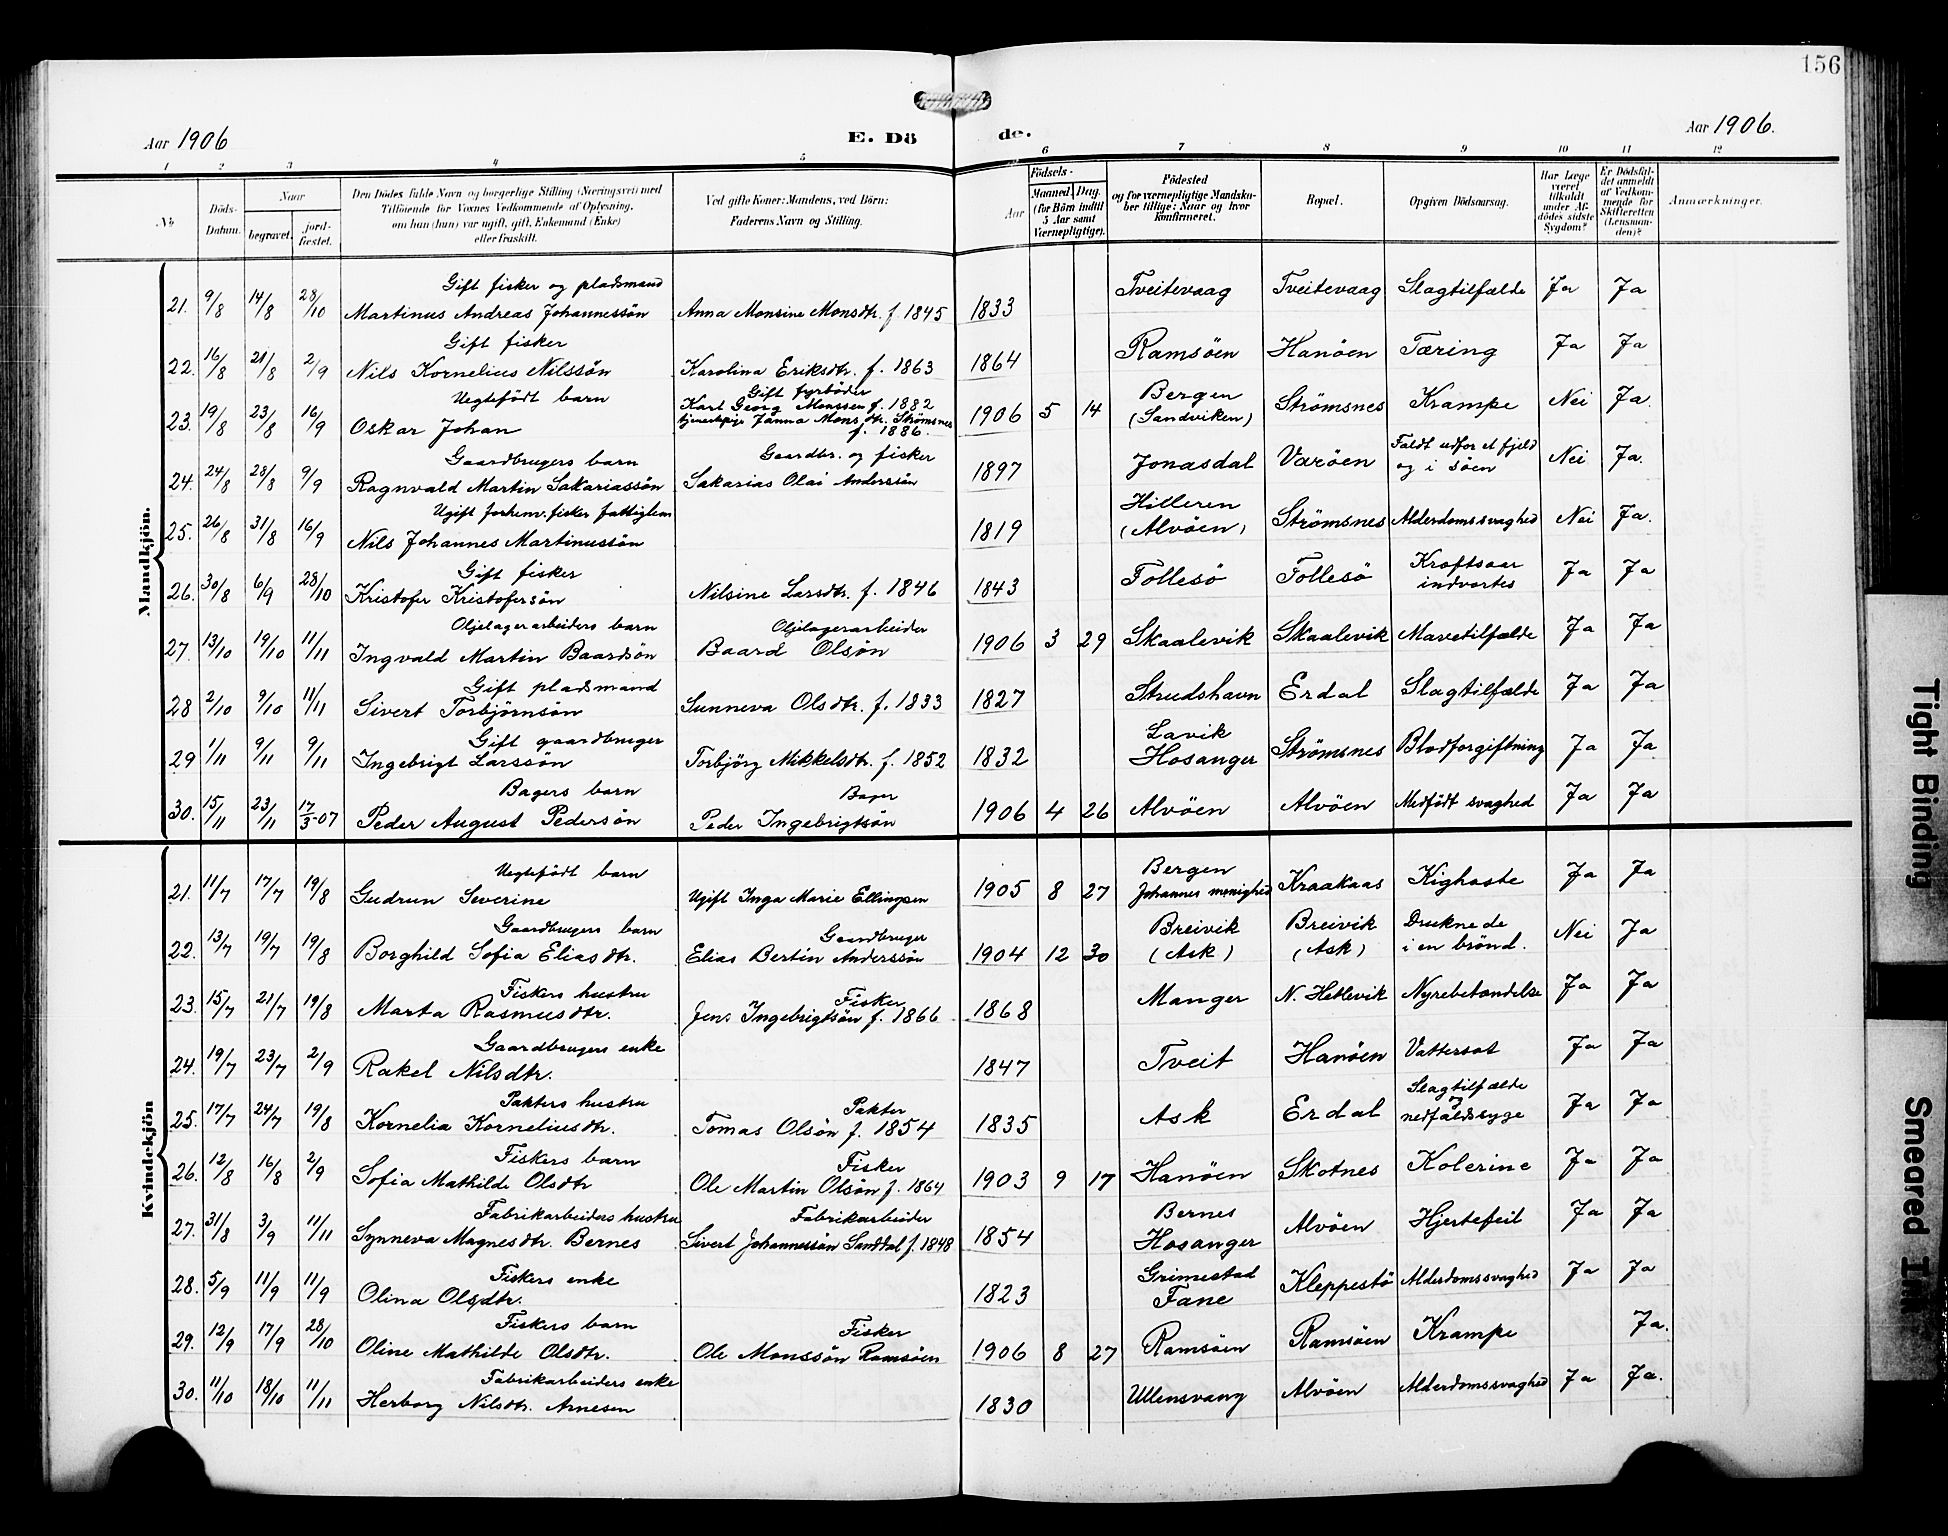 156
Aar 1906
E. Dö
de.
Aar 1906.
1 2 3 4 5 6 7 8 9 10 11 12
No
Döds-Datum.
Naar
begravet.
jord-fæstet.
Den Dödes fulde Navn og borgerlige Stilling (Næringsvei) med
Tilföiende for Voxnes Vedkommende af Oplysning,
om han (hun) var ugift, gift, Enkemand (Enke)
eller fraskilt.
Ved gifte Koner: Mandens, ved Börn:
Faderens Navn og Stilling.
Födsels-
Aar
Maaned. Dag.
(for Börn indtil
5 Aar samt
Værnepligtige).
Födested
og for værnepligtige Mandska-
ber tillige: Naar og hvor
konfirmeret.
Bopæl.
Opgiven Dödsaarsag.
Har Læge
været
tilkaldt
under Af-
dödes sidste
Sygdom?
Er Dödsfal-
det anmeldt
af Vedkom-
mende for
Skifteretten
(Lensman-
den)?
Anmærkninger.
Mandkjön.
Gift fisker og pladsmand
21. 9/8 14/8 28/10 Martinus Andreas Johannessön Anna Monsine Monsdtr. f. 1845 1833 Tveitevaag Tveitevaag Slagtilfælde Ja Ja
Gift fisker
22. 16/8 21/8 2/9 Nils Kornelius Nilssön Karolina Eriksdtr. f. 1863 1864 Ramsöen Hanöen Tæring Ja Ja
Uegtefödt barn Gift fyrböder
23. 19/8 23/8 16/9 Oskar Johan Karl Georg Monssen f. 1882 tjenestepige Janna Monsdtr. Strömsnes f. 1886. 1906 5 14 Bergen (Sandviken) Strömsnes Krampe Nei Ja.
Gaardbrugers barn Gaardbr. og fisker
24. 24/8 28/8 9/9 Ragnvald Martin Sakariassön Sakarias Olai Anderssön 1897 Jonasdal Varöen Faldt udfor et fjeld og i söen Nei Ja.
Ugift forhenv. fisker fattiglem
25. 26/8 31/8 16/9 Nils Johannes Martinussön 1819 Hilleren (Alvöen) Strömsnes Alderdomssvaghed Nei Ja.
Gift fisker
26. 30/8 6/9 28/10 Kristofer Kristofersön Nilsine Larsdtr. f. 1846 1843 Follesö Follesö Kræftsaar indvortes Ja Ja
Oljelagerarbeiders barn Oljelagerarbeider
27. 13/10 19/10 11/11 Ingvald Martin Baardsön Baard Olsön 1906 3 29 Skaalevik Skaalevik Mavetilfælde Ja Ja
Gift pladsmand
28 2/10 9/10 11/11 Sivert Torbjörnsön Sunneva Olsdtr. f. 1833 1827 Strudshavn Erdal Slagtilfælde Ja Ja
Gift gaardbruger
29 1/11 9/11 9/11 Ingebrigt Larssön Torbjörg Mikkelsdtr. f. 1852 1832 Lavik Hosanger Strömsnes Blodforgiftning Ja Ja
Bagers barn Bager
30. 15/11 23/11 17/3-07 Peder August Pedersön Peder Ingebrigtsön 1906 4 26 Alvöen Alvöen Medfödt svaghed Ja Ja
Kvindekjön
Uegtefödt barn
21. 11/7 17/7 19/8 Gudrun Severine Ugift Inga Marie Ellingsen 1905 8 27 Bergen Johannes menighed Kraakaas Kighoste Ja Ja
Gaardbrugers barn Gaardbruger
22. 13/7 19/7 19/8 Borghild Sofia Eliasdtr. Elias Bertin Anderssön 1904 12 30 Breivik (Ask) Breivik (Ask) Druknede i en brönd. Nei Ja
Fiskers hustru Fisker
23. 15/7 21/7 19/8 Marta Rasmusdtr. Jens Ingebrigtsön f. 1866 1868 Manger N. Hetlevik Nyrebetændelse Ja Ja
Gaardbrugers enke
24. 19/7 23/7 2/9 Rakel Nilsdtr. 1847 Tveit Hanöen Vattersot Ja Ja
Pakters hustru Pakter
25. 17/7 24/7 19/8 Kornelia Korneliusdtr. Tomas Olsön f. 1854 1835 Ask Erdal Slagtilfælde og nedfaldssyge Ja Ja
Fiskers barn Fisker
26. 12/8 16/8 2/9 Sofia Mathilde Olsdtr Ole Martin Olsön f. 1864 1903 9 17 Hanöen Skotnes Kolerine Ja Ja
Fabrikarbeiders hustru Fabrikarbeider
27. 31/8 3/9 11/11 Synneva Magnesdtr. Bernes Sivert Johannessön Sanddal f. 1848 1854 Bernes Hosanger Alvöen Hjertefeil Ja Ja
Fiskers enke
28. 5/9 11/9 11/9 Olina Olsdtr. 1823 Grimestad Fane Kleppestö Alderdomssvaghed Ja Ja
Fiskers barn Fisker
29. 12/9 17/9 28/10 Oline Mathilde Olsdtr. Ole Monssön Ramsöen 1906 8 27 Ramsöen Ramsöen Krampe Ja.
Fabrikarbeiders enke
30. 11/10 18/10 11/11 Herborg Nilsdtr. Arnesen 1830 Ullensvang Alvöen Alderdomssvaghed Ja Ja.
Tight Binding
Smeared Ink